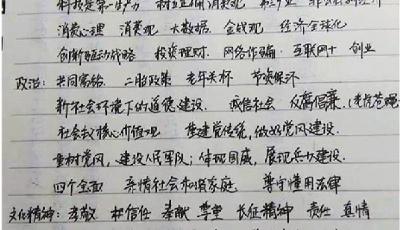 科技是第一生产力
消费心理 消费观 大数据 金钱观 经济全球化
创新驱动战略 投资理财 网络诈骗 互联网+ 创业
政治: 共同富裕 二胎政策 老年关怀 节资保环
新社会环境下的道德建设 诚信社会 反腐倡廉(老虎苍蝇
社会核心价值观 重建党传统, 做好党风建设.
重树党风, 建设人民军队; 体现国威, 展现兵力建设
四个全面 亲情社会和谐家庭 尊守懂用法律
文化精神: 孝敬 信任 奉献 尊重 长征精神 责任 真情